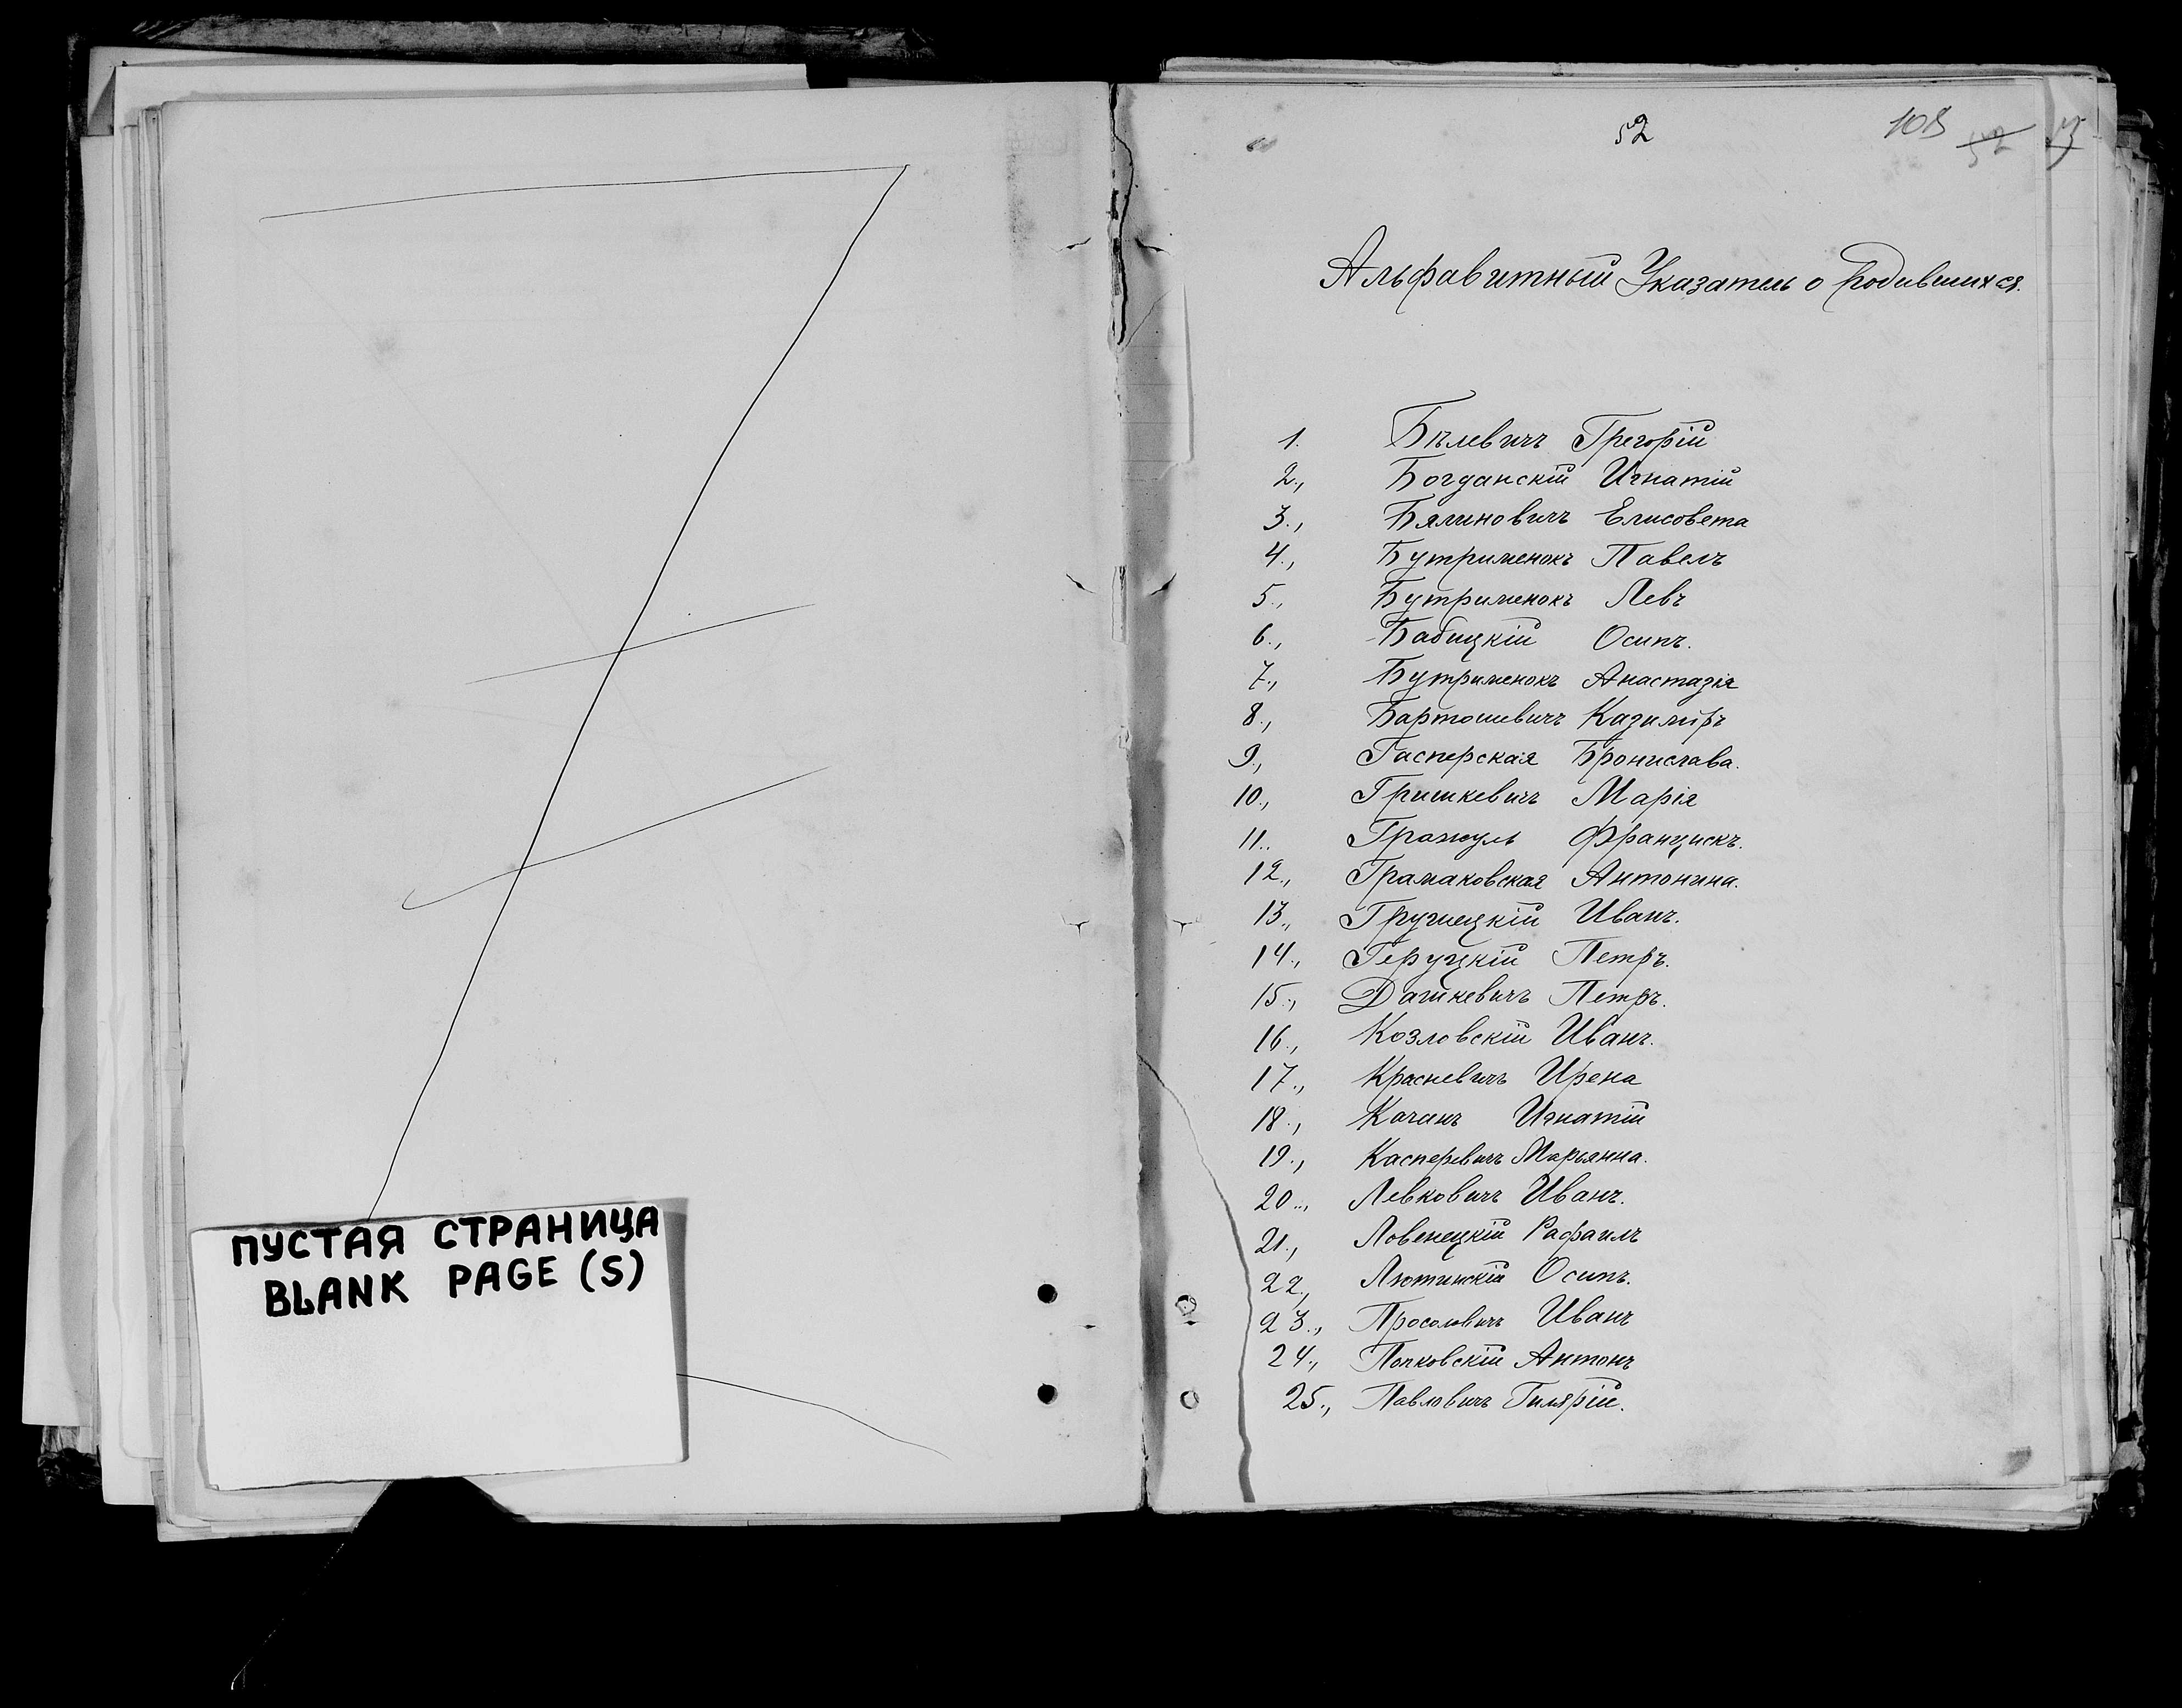 ПУСТАЯ СТРАНИЦА
BLANK PAGE (S)
52
108
52
Альфавитный Указатель о родившихся.
1. Бѣлевичъ Грегорій
2., Богданскій Игнатій
3., Бялиновичъ Елисовета
4., Бутрименокъ Павелъ
5., Бутрименокъ Левъ
6., Бабицкій Осипъ.
7., Бутрименокъ Анастазія
8., Бартошевичъ Казиміръ
9., Гасперская Бронислава.
10., Гришкевичъ Марія
11.. Гражуль Францискъ.
12., Грамаковская Антонина.
13., Иванъ.
14., Геруцкій Петръ.
15., Дашкевичъ Петръ.
16., Козловскій Иванъ.
17., Красневичъ Ирена
18., Качанъ Игнатій
19., Касперевичъ Марьянна.
20.., Левковичъ Иванъ.
21., Ловенецкій Рафаилъ
22., Лютинскій Осипъ.
23., Просоловичъ Иванъ
24., Попковскій Антонъ
25., Павловичъ Гилярій.